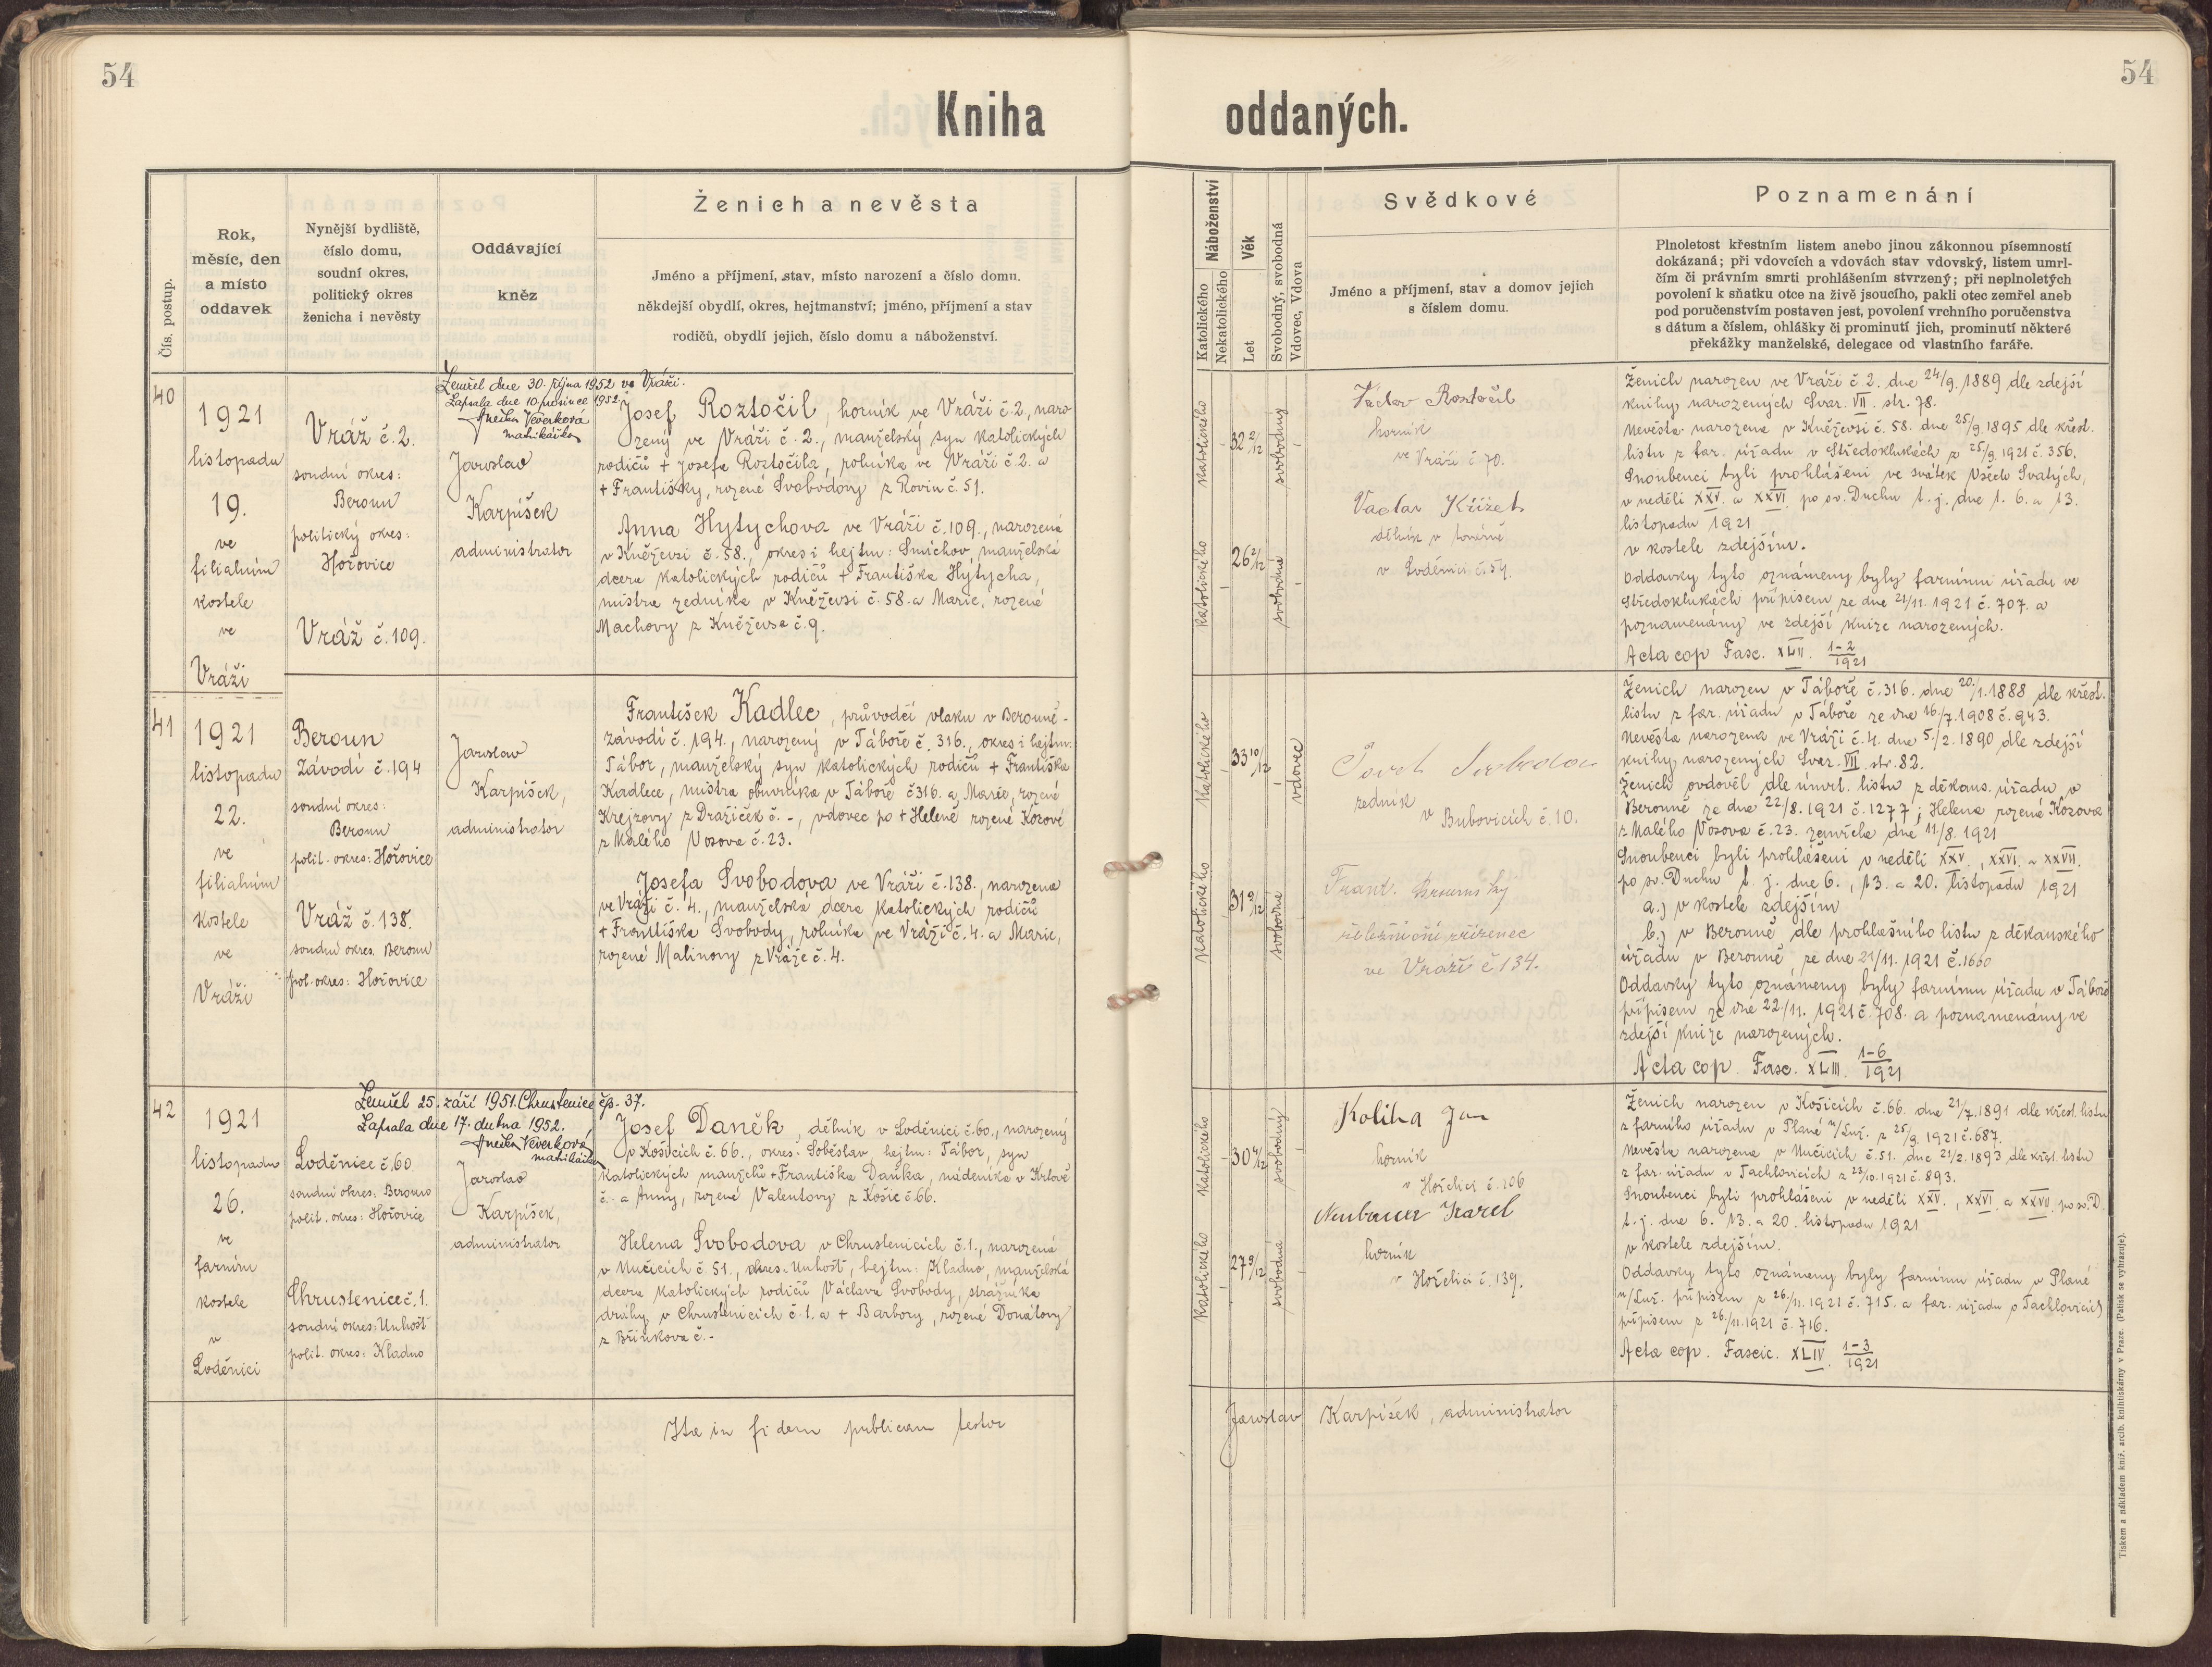 54
54
Kniha oddaných.
Čís. postup.
Rok,
měsíc, den
a místo
oddavek
Nynější bydliště,
číslo domu,
soudní okres,
politický okres
ženicha i nevěsty
Oddávající
kněz
Ženich a nevěsta
Jméno a příjmení, stav, místo narození a číslo domu.
někdejší obydlí, okres, hejtmanství; jméno, příjmení a stav
rodičů, obydlí jejich, číslo domu a náboženství.
Náboženství
Katolického
Nekatolického
Věk
Let
Svobodný, svobodná
Vdovec, Vdova
Svědkové
Jméno a příjmení, stav a domov jejich
s číslem domu.
Poznamenání
Plnoletost křestním listem anebo jinou zákonnou písemností
dokázaná; při vdovcích a vdovách stav vdovský, listem umrl-
čím či právním smrti prohlášením stvrzený; při neplnoletých
povolení k sňatku otce na živě jsoucího, pakli otec zemřel aneb
pod poručenstvím postaven jest, povolení vrchního poručenstva
s dátum a číslem, ohlášky či prominutí jich, prominutí některé
překážky manželské, delegace od vlastního faráře.
40
1921
listopadu
19.
ve
filialním
kostele
ve
Vráži
Vráž č. 2.
soudní okres:
Beroun
politický okres:
Hořovice
Vráž č. 109.
Zemřel dne 30. října 1952 ve Vráži.
Zapsala dne 10. prosince 1952.
Anežka Veverková
matrikářka
Jaroslav
Karpíšek
administrator
Josef Roztočil, horník ve Vráži č. 2., naro
zený ve Vráži č. 2., manželský syn katolických
rodičů + Josefa Roztočila, rolníka ve Vráži č. 2. a
+ Františky, rozené Svobodovy z Rovin č. 51.
Anna Hytychova ve Vráži č. 109., narozená
v Kněževsi č. 58., okres i hejtm: Smíchov, manželská
dcera katolických rodičů + Františka Hytycha,
mistra zedníka v Kněževsi č. 58. a Marie, rozené
Machovy z Kněževse č. 9.
katolického
32 2/12
svobodný
katolického
26 2/12
svobodná
Václav Roztočil
horník
ve Vráži č 70.
Vaclav Křížek
dělník v továrně
v Loděnici č. 54.
Ženich narozen ve Vráži č 2. dne 24/9. 1889 dle zdejší
knihy narozených Svaz. VII. str. 78.
Nevěsta narozena v Kněževsi č. 58. dne 25/9. 1895 dle křest.
listu z far. úřadu v Středoklukách z 25/9. 1921 č. 356.
Snoubenci byli prohlášeni ve svátek Všech Svatých,
v neděli XXV. a XXVI. po sv. Duchu t. j. dne 1. 6. a 13.
listopadu 1921
v kostele zdejším.
Oddavky tyto oznámeny byly farnímu úřadu ve
Středoklukách přípisem ze dne 21/11. 1921 č. 707. a
poznamenány ve zdejší knize narozených.
Acta cop Fasc. XLII. 1-2/1921
41
1921
listopadu
22.
ve
filialním
kostele
ve
Vráži
Beroun
Závodí č. 194
soudní okres:
Beroun
polit. okres: Hořovice
Vráž č. 138.
soudní okres. Beroun
pol. okres: Hořovice
Jaroslav
Karpíšek,
administrator
František Kadlec, průvodčí vlaku v Berouně-
Závodí č. 194., narozený v Táboře č. 316., okres i hejtm.
Tábor, manželský syn katolických rodičů + Františka
Kadlece, mistra obuvníka v Táboře č 316. a Marie, rozené
Krejzovy z Dražiček č. -, vdovec po + Heleně rozené Kozové
z Malého Vosova č. 23.
Josefa Svobodova ve Vráži č. 138., narozena
ve Vráži č. 4., manželská dcera katolických rodičů
+ Františka Svobody, rolníka ve Vráži č. 4. a Marie,
rozené Malinovy z Vráže č. 4.
katolického
33 10/12
vdovec
katolického
31 9/12
svobodná
Svoboda
zedník
v Bubovicích č. 10.
Frant.
železniční zřízenec
ve Vráži č 134.
Ženich narozen v Táboře č. 316. dne 20./1. 1888 dle křest.
listu z far. úřadu v Táboře ze dne 16/7. 1908 č. 943.
Nevěsta narozena ve Vráži č. 4. dne 5./2. 1890 dle zdejší
knihy narozených Svaz. VII. str. 82.
Ženich ovdověl dle úmrt. listu z děkans. úřadu v
Berouně ze dne 22/8. 1921 č. 1277; Helena rozená Kozova
z Malého Vosova č. 23. zemřela dne 11/8. 1921
Snoubenci byli prohlášeni v neděli XXV., XXVI. a XXVII.
po sv. Duchu t. j. dne 6., 13. a 20. listopadu 1921
a.) v kostele zdejším
b.) v Berouně dle prohlašního listu z děkanského
úřadu v Berouně ze dne 21/11. 1921 č. 1660
Oddavky tyto oznámeny byly farnímu úřadu v Táboře
přípisem ze dne 22./11. 1921 č. 708. a poznamenány ve
zdejší knize narozených.
Acta cop. Fasc. XLIII. 1-6/1921
42
1921
listopadu
26.
ve
farním
kostele
v
Loděnici
Zemřel 25. září 1951. Chrustenice čp. 37.
Zapsala dne 17. dubna 1952.
Anežka Veverková
matrikářka
Loděnice č. 60
soudní okres: Beroun
polit. okres: Hořovice
Chrustenice č. 1.
soudní okres: Unhošť
polit. okres: Kladno
Jaroslav
Karpíšek,
administrator
Josef Daněk, dělník v Loděnici č. 60., narozený
v Košicích č. 66., okres: Soběslav, hejtm: Tábor, syn
katolických manželů + Františka Daňka, nádeníka v Krtově
č. - a Anny, rozené Valentovy z Košic č. 66.
Helena Svobodova v Chrustenicích č. 1., narozená
v Nučicích č. 51., okres: Unhošť, hejtm: Kladno, manželská
dcera katolických rodičů Václava Svobody, strážníka
dráhy v Chrustenicích č. 1. a + Barbory, rozené Donátovy
z Břínkova č. -
katolického
30 4/12
svobodný
katolického
27 9/12
svobodná
Koliha Jan
horník
v Hořelici č. 106
Neubauer Karel
horník
v Hořelici č. 139.
Ženich narozen v Košicích č. 66. dne 21/7. 1891 dle křest. listu
z farního úřadu v Plané n/Luž. z 25/9. 1921 č. 687.
Nevěsta narozena v Nučicích č. 51. dne 21/2. 1893 dle křest. listu
z far. úřadu v Tachlovicích z 23/10. 1921 č. 893.
Snoubenci byli prohlášeni v neděli XXV., XXVI. a XXVII. po sv. D.
t. j. dne 6. 13. a 20. listopadu 1921
v kostele zdejším.
Oddavky tyto oznámeny byly farnímu úřadu v Plané
n/Luž. přípisem z 26./11. 1921 č. 715. a far. úřadu v Tachlovicích
přípisem z 26./11. 1921 č. 716.
Acta cop. Fascic. XLIV. 1-3/1921
Ita in fidem publicam testor
Jaroslav Karpíšek, administrator
Tiskem a nákladem kníž. arcib. knihtiskárny v Praze. (Patisk se vyhrazuje).